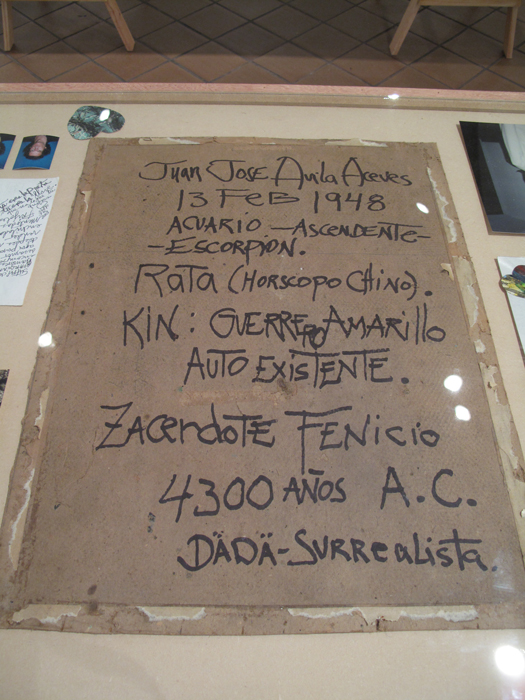 Juan José Avila Aceves
13 FEB 1948
ACUARIO - ASCENDENTE -
- ESCORPION.
RATA (HORSCOPO CHINO).
KIN: GUERRERO AMARILLO
AUTO EXISTENTE.
ZACERDOTE FENICIO
4300 AÑOS A.C.
DÄDÄ-SURREALISTA.